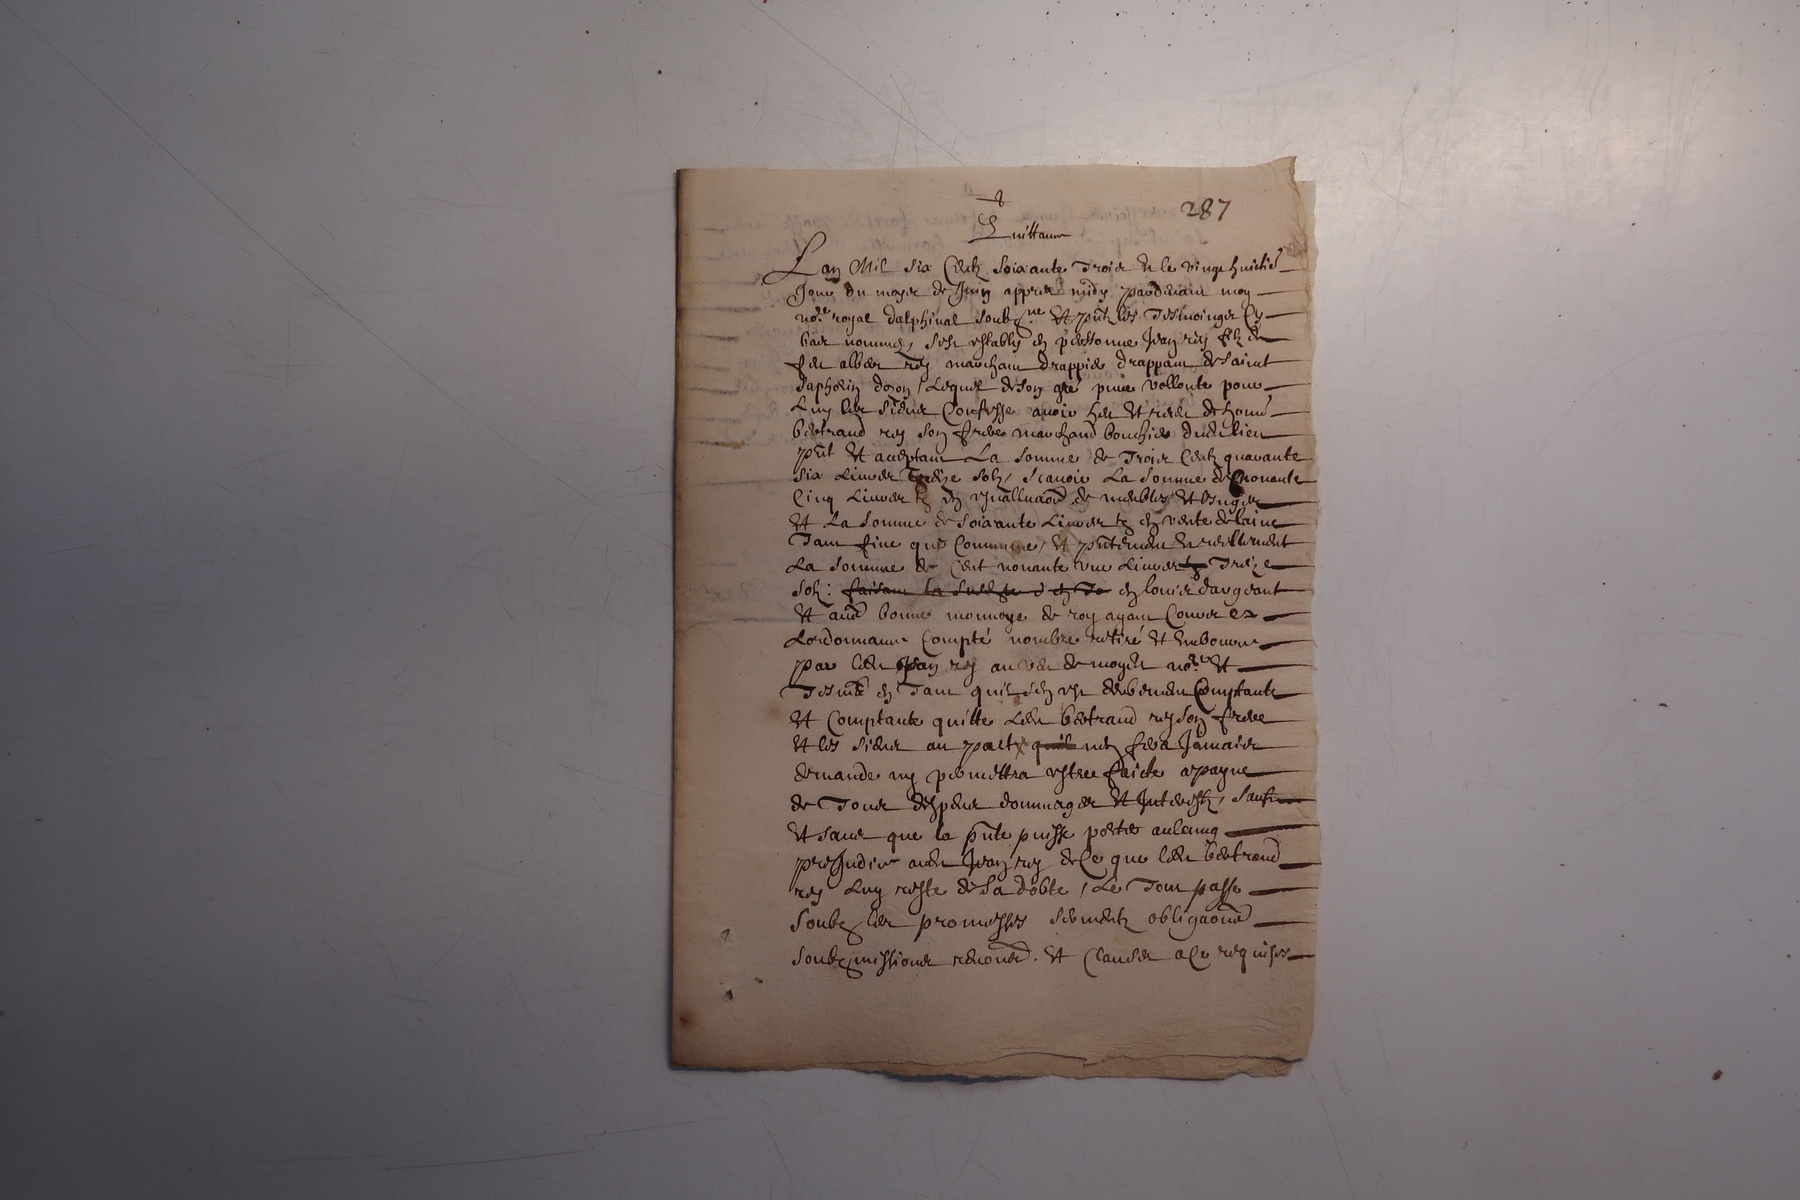 287
Quittance
Lan Mil six Centz Soixante Trois & le vingt huictie
Jour du moys de Juing appres midy pardevant moy
no.re royal dalphinal soubz.ne et pntz les Tesmoingz Cy
bas nommes, sest estably en personne Jean rey filz de
feu marchant drappier drappant de saint
Saphorin dozon, Lequel de son gré pure vollonte pour
Luy les siens Confesse avoir heu et receu de hon
bertrand rey son frere marchand bouchier dudit lieu
pnt et aceptant La somme de Trois Centz quarante
six Livres Treize solz, scavoir La somme de nonante
Cinq Livres tz en de meubles et
et La somme de soixante Livres tz en vente de laine
Tant fine que Commune, et pntement reellement
La somme de Cent nonante une Livres tz Treize
solz: faisant la susd en louis dargeant
et au bonne monnoye de roy ayant Cours
Lordonnance Compté nombre retiré et embource
par led Jean rey au veu de moyd no.re et
Tesm en Tant quil sen est Comptante
et Comptante quitte Led bertrand rey son frere
et les siens au pact quil nen fera Jamais
demande ny permettra estre faicte a payne
de Tous despens dommages et Interestz, sauf
et sans que la pnte puisse porter aulcung
prejudice aud Jean rey de Ce que led bertrand
rey Luy reste de sa dobte, Le Tout passe
Soubz les promesses serments obligaons
soubzmissions renon. et Clauses a Ce requises